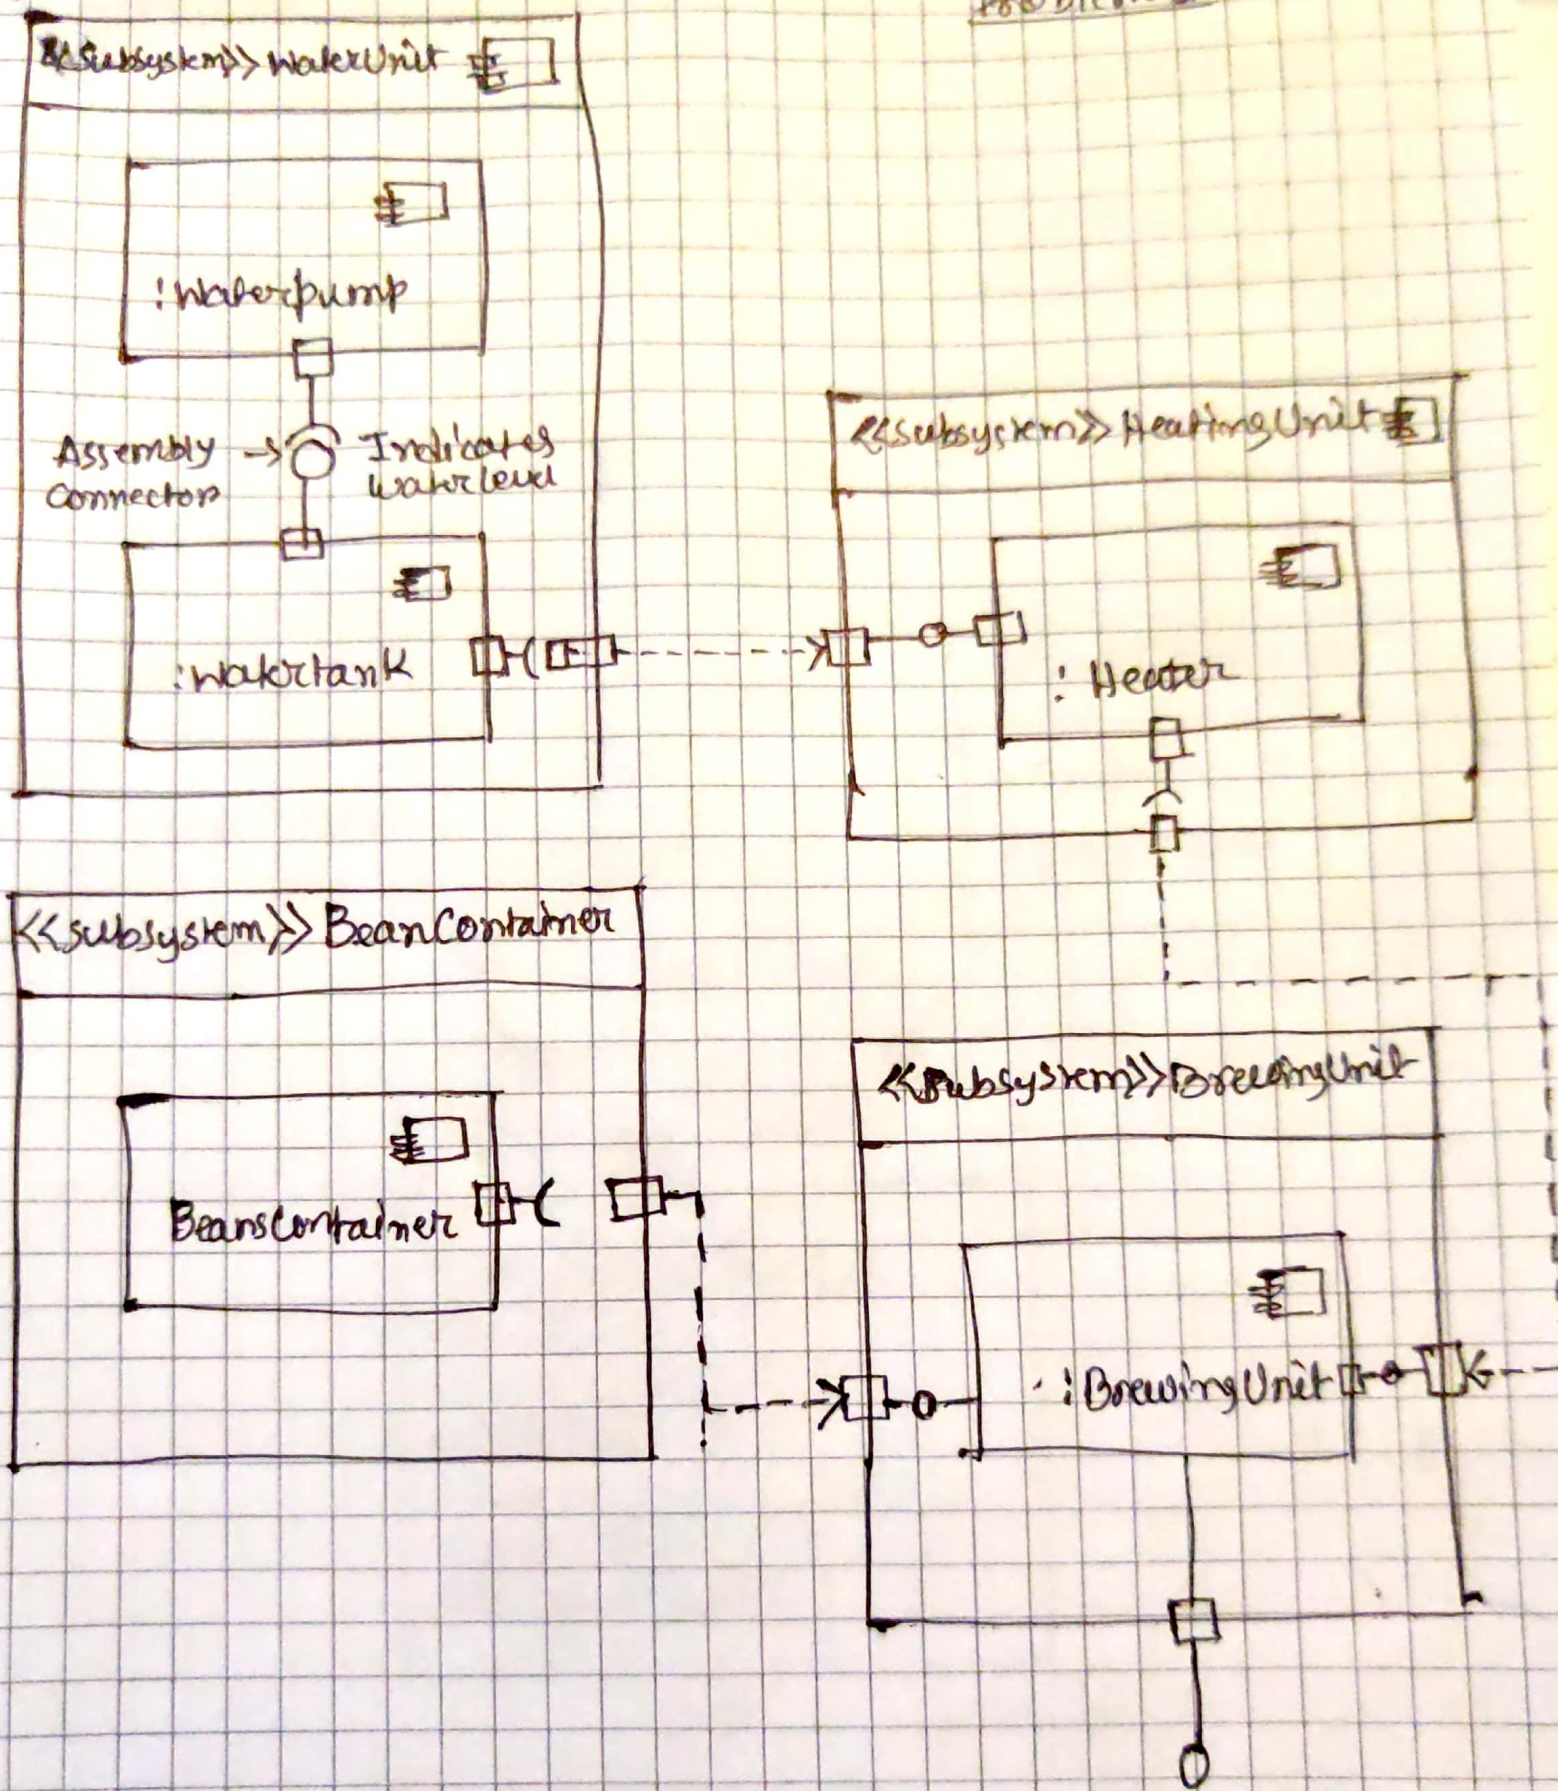 <<subsystem>> WaterUnit
:Waterpump
Assembly
Connector
Indicates
Waterlevel
:Watertank
<<subsystem>> HeatingUnit
: Heater
<<subsystem>> BeanContainer
BeansContainer
<<subsystem>> BrewingUnit
:BrewingUnit